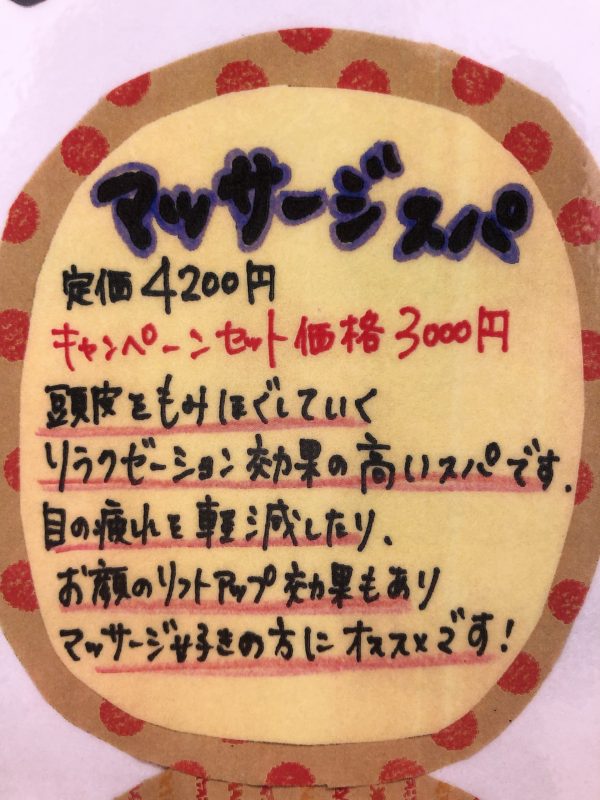 マッサージスパ
定価4200円
キャンペーンセット価格3000円
頭皮をもみほぐしていく
リラクゼーション効果の高いスパです.
目の疲れを軽減したり、
お顔のリフトアップ効果もあり
マッサージ好きの方にオススメです!